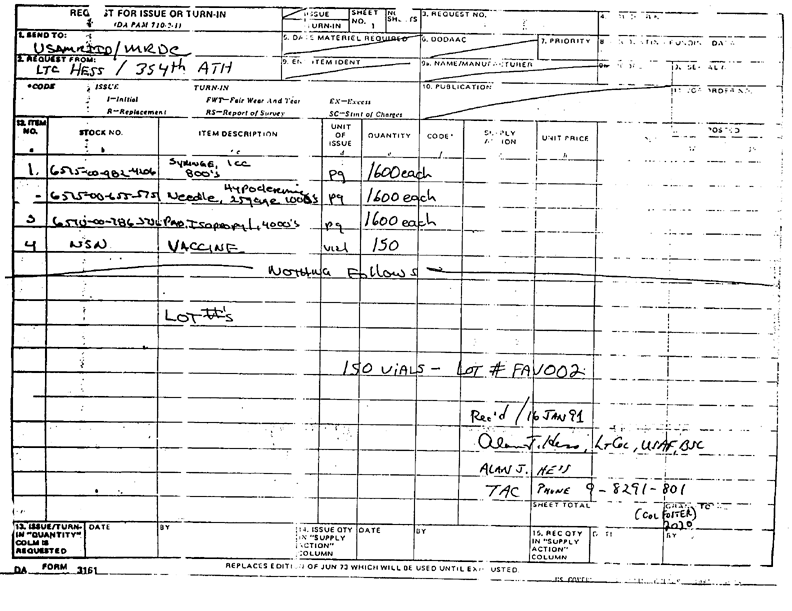 ST FOR ISSUE OR TURN-IN
(DA PAM 710-2-1)
ISSUE
URN-IN
SHEET NO. 1
3. REQUEST NO.
1. SEND TO:
USAMRIID/MRDC
5. DATE MATERIEL REQUIRED
6. DODAAC
7. PRIORITY
2. REQUEST FROM:
LTC HESS / 354th ATH
ITEM IDENT
9a. NAME/MANUFACTURER
*CODE
ISSUE
TURN-IN
10. PUBLICATION
I-Initial
FWT-Fair Wear And Tear
EX-Excess
R-Replacement
RS-Report of Survey
SC-Stmt of Charges
12. ITEM NO.
STOCK NO.
ITEM DESCRIPTION
UNIT OF ISSUE
QUANTITY
CODE*
SUPPLY ACTION
UNIT PRICE
POSTED
1. 6515-00-982-4206 SYRINGE, 1CC 800's pg 1600 each
- 6515-00-655-5751 Needle, Hypodermic 25gauge 1000's pg 1600 each
3 PAD, Isopropyl, 4000's pg 1600 each
4 NSN VACCINE vial 150
Nothing Follows
LOT #'s
150 VIALS - LOT # FAV002
Rec'd / 16 JAN 91
Alan J. Hess, LtCol, USAF, BSC
ALAN J. HESS
TAC PHONE 9-8291-801
SHEET TOTAL
(COL FOSTER)
2020
13. ISSUE/TURN-IN "QUANTITY" COLM IS REQUESTED
DATE
BY
14. ISSUE QTY IN "SUPPLY ACTION" COLUMN
DATE
BY
15. REC QTY IN "SUPPLY ACTION" COLUMN
BY
DA FORM 3161
REPLACES EDITION OF JUN 73 WHICH WILL BE USED UNTIL EXHAUSTED